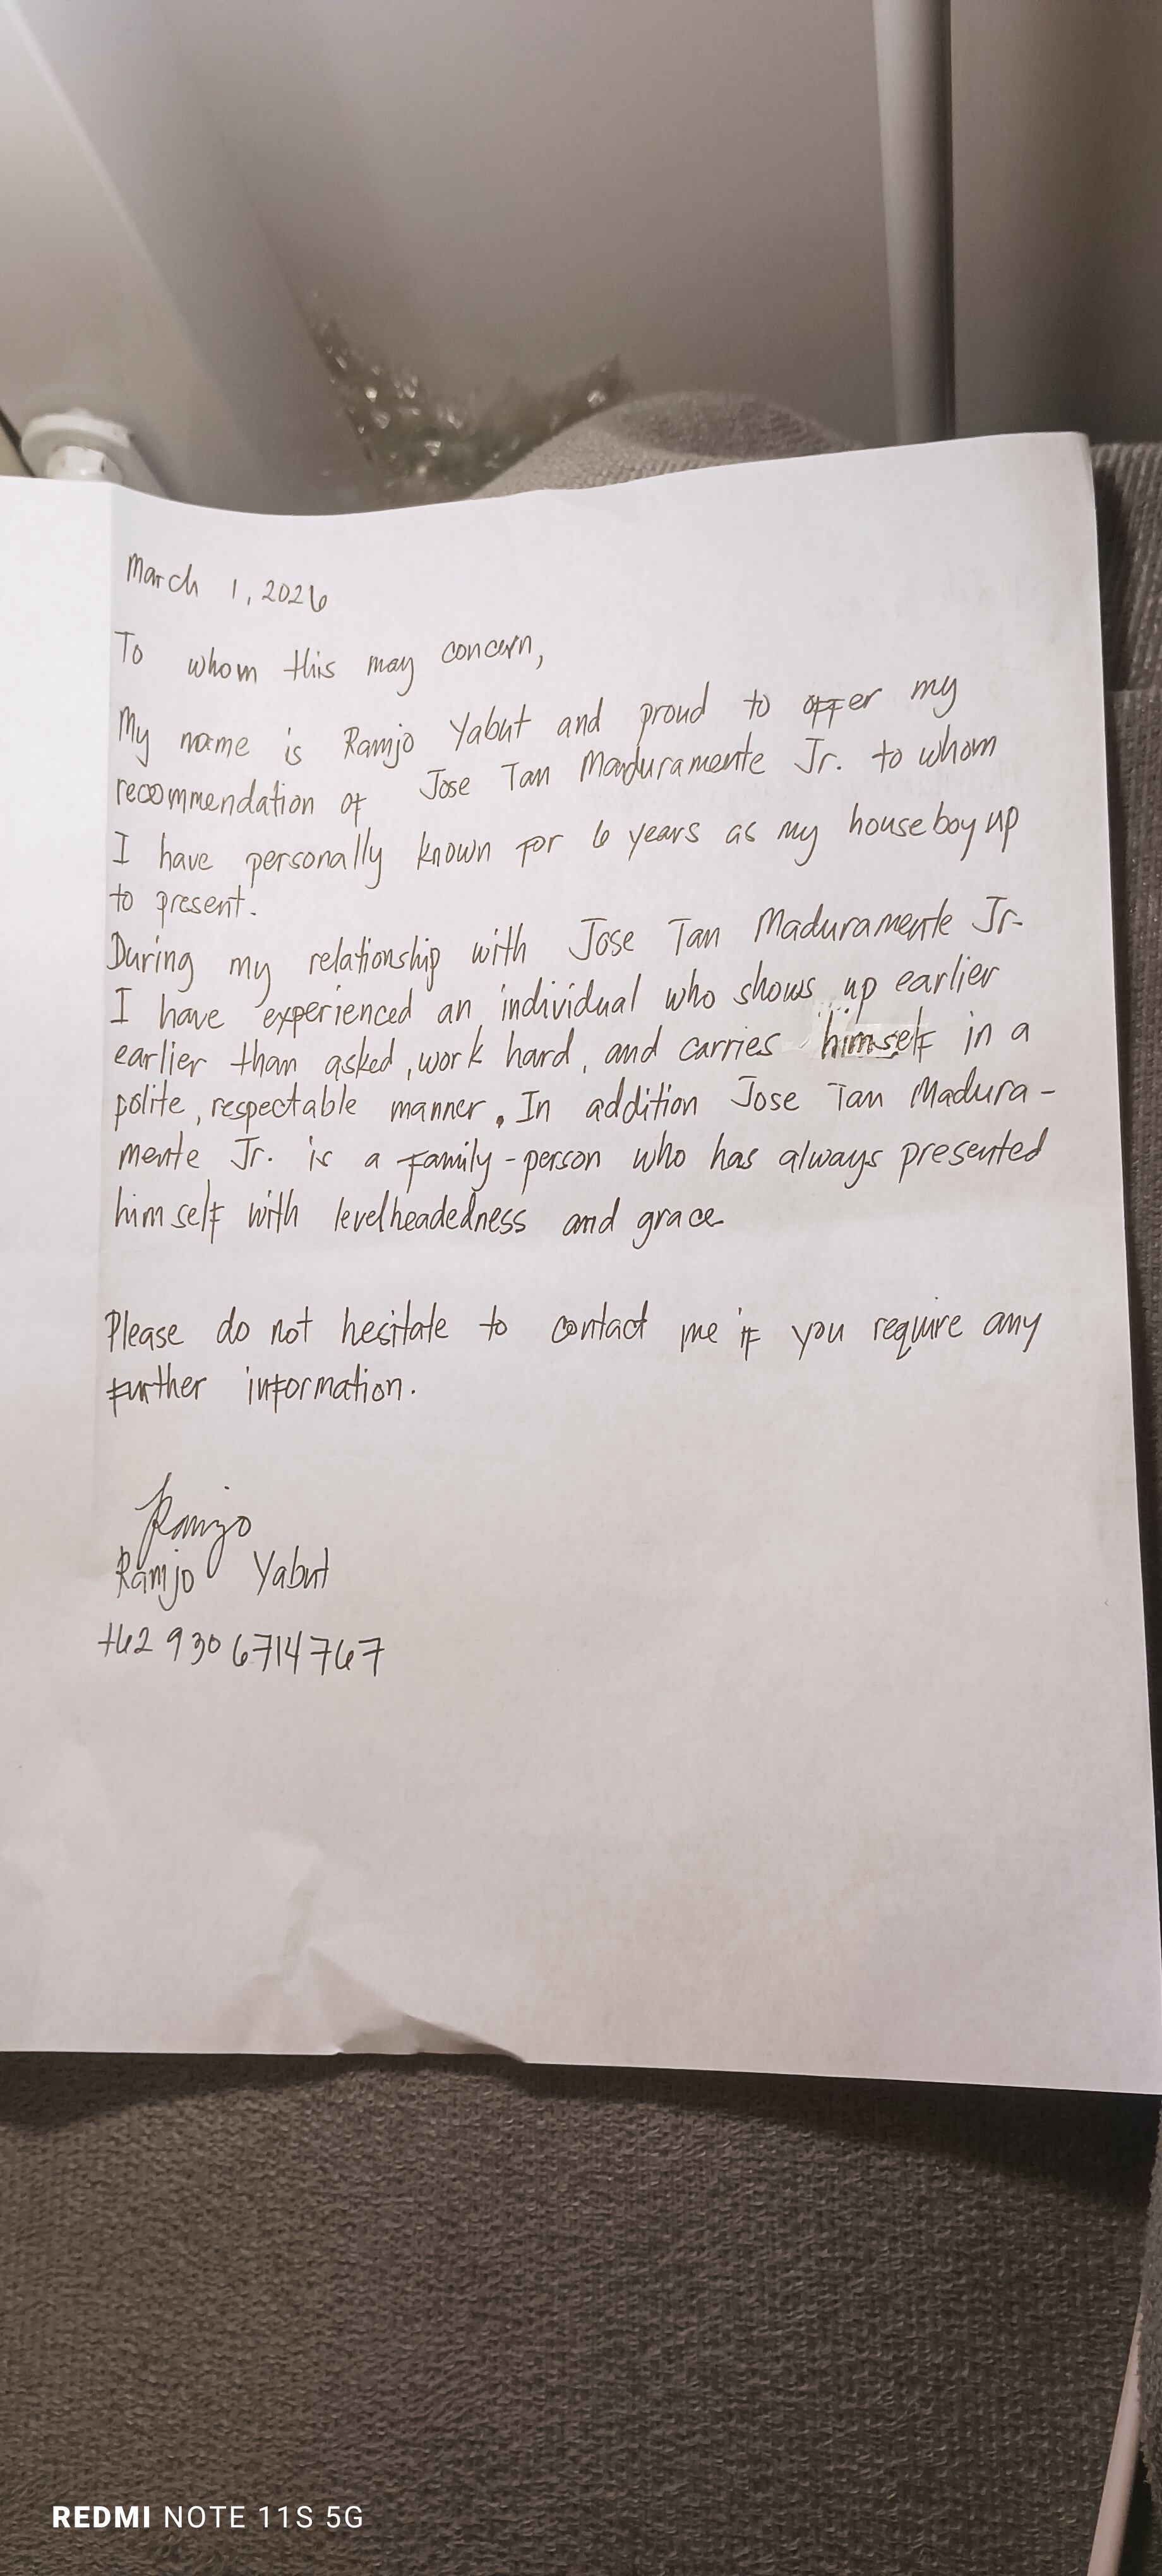 March 1, 2026
To whom this may concern,
My name is Ramjo Yabut and proud to offer my
recommendation of Jose Tan Maduramente Jr. to whom
I have personally known for 6 years as my houseboy up
to present.
During my relationship with Jose Tan Maduramente Jr.
I have experienced an individual who shows up earlier
earlier than asked, work hard, and carries himself in a
polite, respectable manner. In addition Jose Tan Madura-
mente Jr. is a family-person who has always presented
himself with levelheadedness and grace
Please do not hesitate to contact me if you require any
further information.
Ramjo
Ramjo Yabut
+62 930 6714767
REDMI NOTE 11S 5G